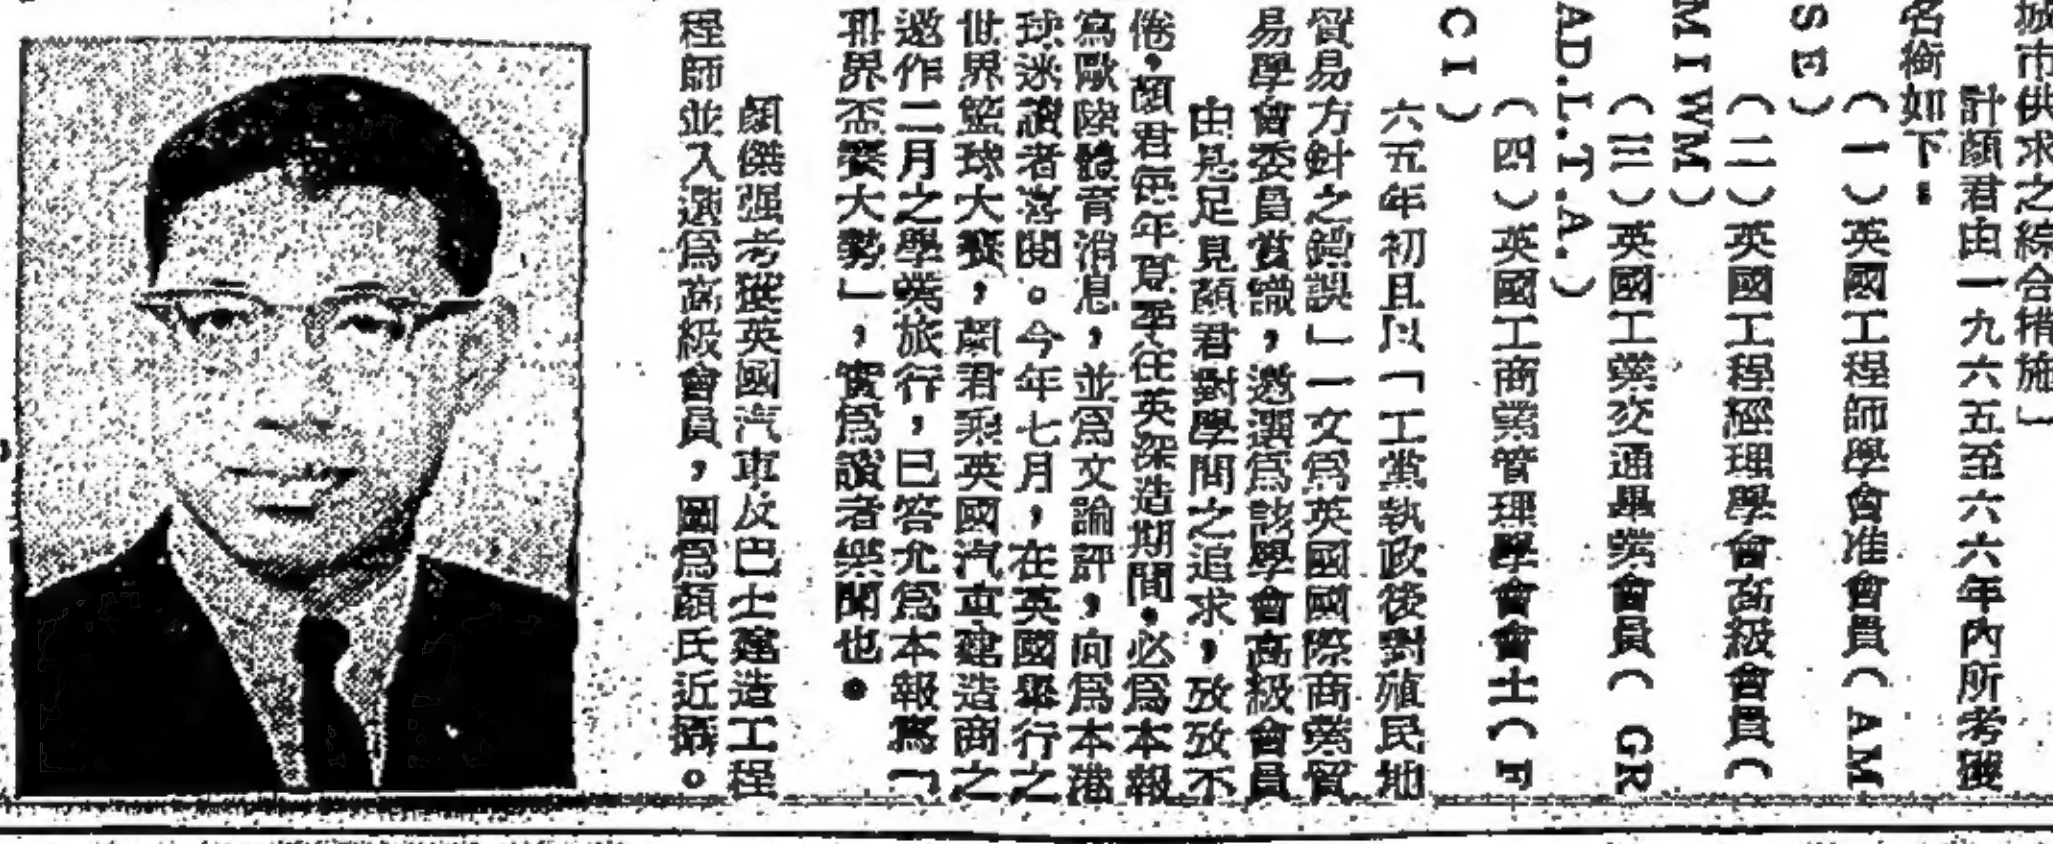 城市供求之綜合措施」
計顏君由一九六五至六六年內所考獲
名銜如下：
（一）英國工程師學會准會員（AM
SE）
（二）英國工程經理學會高級會員（
MIWM）
（三）英國工業交通畢業會員（GR
AD.L.T.A.）
（四）英國工商業管理學會會士（F
CI）
六五年初且以「工黨執政後對殖民地
貿易方針之錯誤」一文為英國國際商業貿
易學會委員賞識，邀選為該學會高級會員
由是足見顏君對學問之追求，孜孜不
倦，顏君每年夏季往英深造期間，必為本報
寫歐陸體育消息，並為文論評，向為本港
球迷讀者喜閱。今年七月，在英國舉行之
世界盃大賽，顏君乘英國汽車建造商之
邀作二月之學業旅行，已答允為本報寫「
世界盃賽大勢」，實為讀者樂聞也。
顏傑强考獲英國汽車及巴士建造工程
程師並入選為高級會員，圖為顏氏近攝。